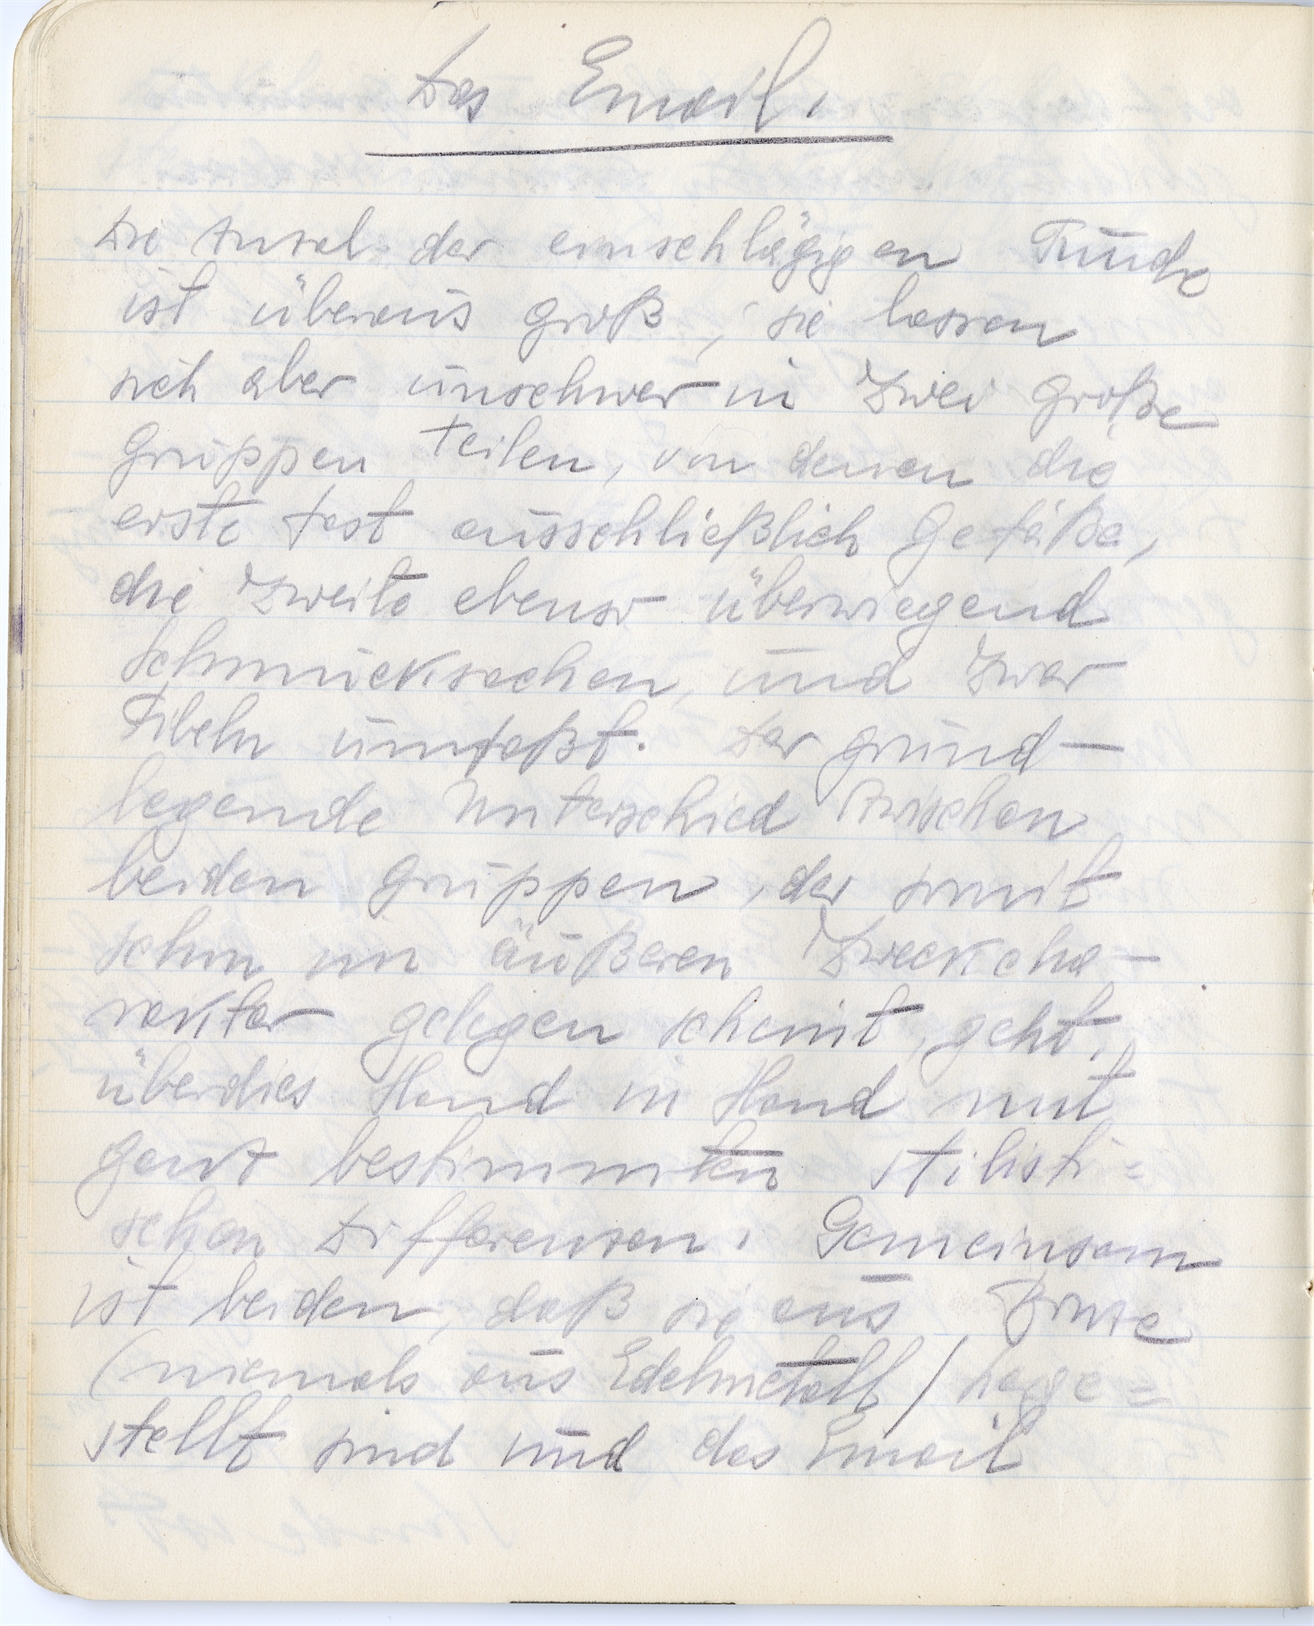 Das Email.
Die Anzal der einschlägigen Funde
ist überaus groß, sie lassen
sich aber unschwer in zwei große
Gruppen teilen, von denen die
erste fast ausschließlich Gefäße,
die zweite ebenso überwiegend
Schmucksachen, und zwar
Fibeln umfaßt. Der grund-
legende Unterschied zwischen
beiden Gruppen, der somit
schon im äußeren Zweckcha-
rakter gelegen scheint, geht
überdies Hand in Hand mit
ganz bestimmten stilisti=
schen Differenzen. Gemeinsam
ist beiden, daß sie aus Bronze
(niemals aus Edelmetall) herge=
stellt sind und das Email